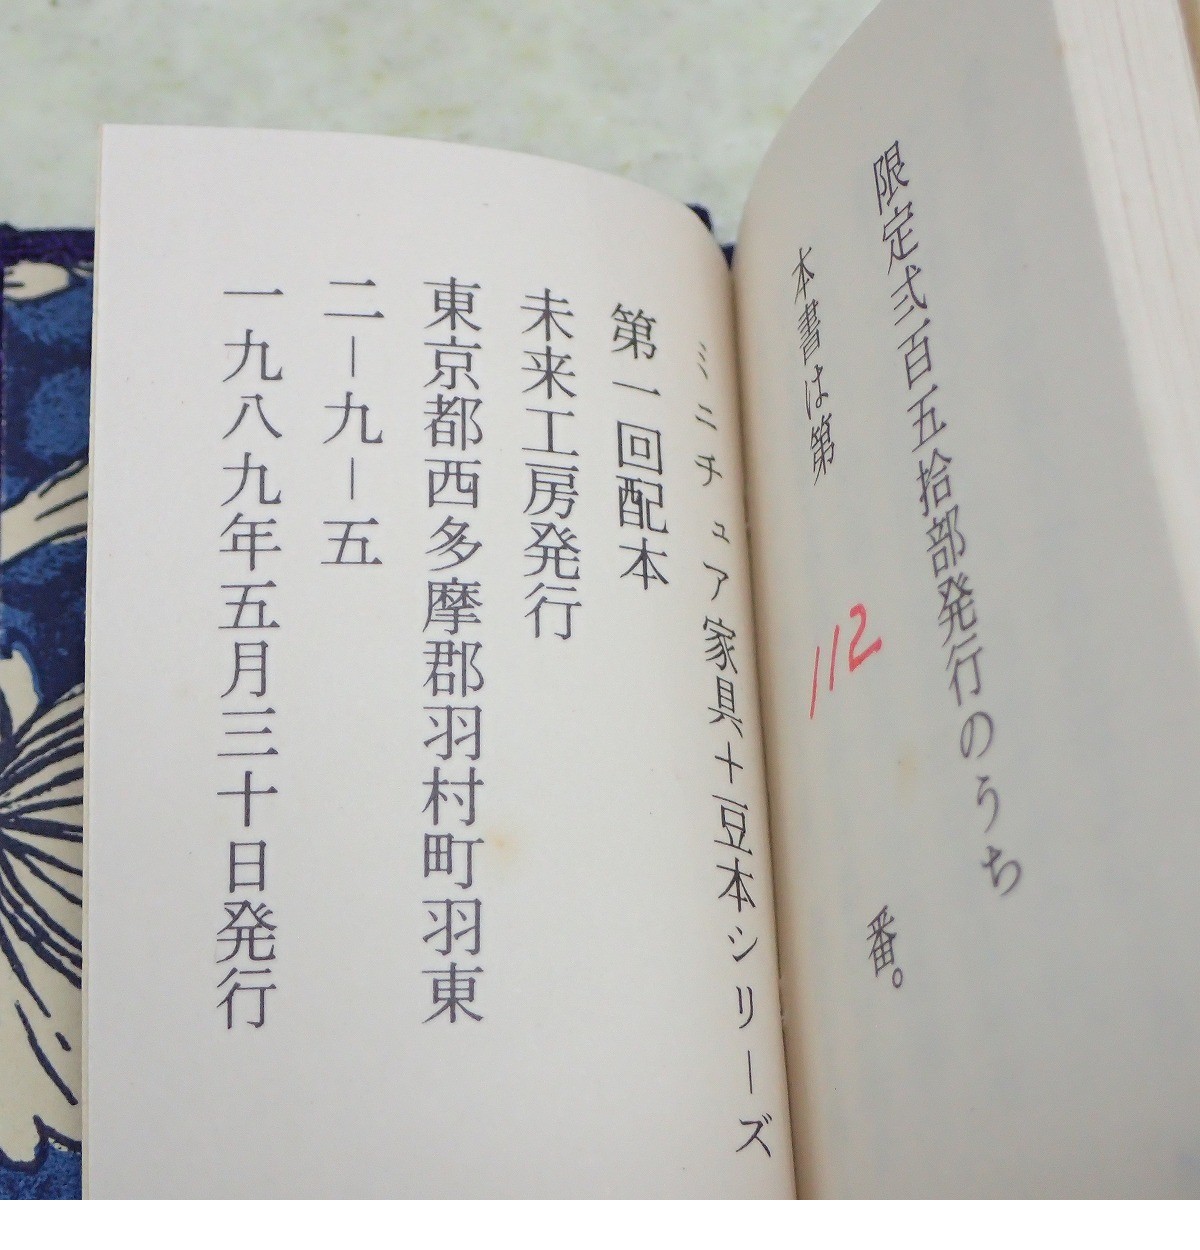 限定弐百五拾部発行のうち
本書は第 112 番。
ミニチュア家具＋豆本シリーズ
第一回配本
未来工房発行
東京都西多摩郡羽村町羽東
二－九－五
一九八九年五月三十日発行